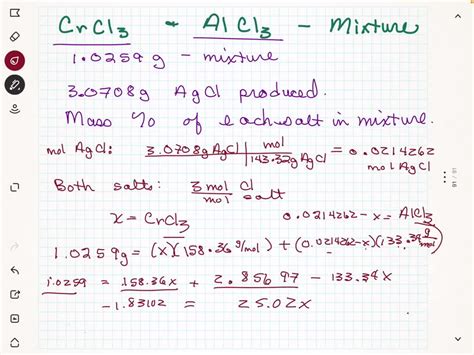 CrCl3 - AlCl3 - Mixture
1.0259 g - mixture
3.0708g AgCl produced.
Mass % of each salt in mixture.
mol AgCl: 3.0708g AgCl | mol / 143.32g AgCl = 0.0214262 mol AgCl
Both salts: 3 mol Cl / mol salt
x = CrCl3 0.0214262 - x = AlCl3
1.0259g = (x)(158.36 g/mol) + (0.0214262-x)(133.34 g/mol)
1.0259 = 158.36x + 2.85697 - 133.34x
-1.83102 = 25.02x